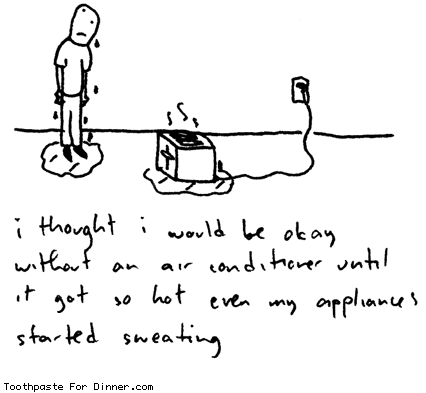 i thought i would be okay
without an air conditioner until
it got so hot even my appliances
started sweating
Toothpaste For Dinner.com